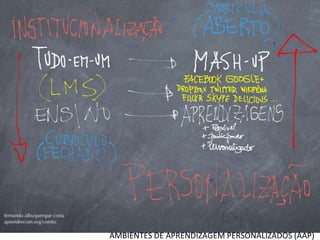 INSTITUCIONALIZAÇÃO
CURRÍCULO
(ABERTO)
TUDO-EM-UM
MASH-UP
(LMS)
FACEBOOK GOOGLE+
DROPBOX TWITTER WIKIPÉDIA
FLICKR SKYPE DELICIOUS ...
ENSINO
APRENDIZAGENS
+ Flexível
+ Participado
+ Personalizado
CURRÍCULO
(FECHADO)
PERSONALIZAÇÃO
fernando albuquerque costa
aprendercom.org/comtic
AMBIENTES DE APRENDIZAGEM PERSONALIZADOS (AAP)